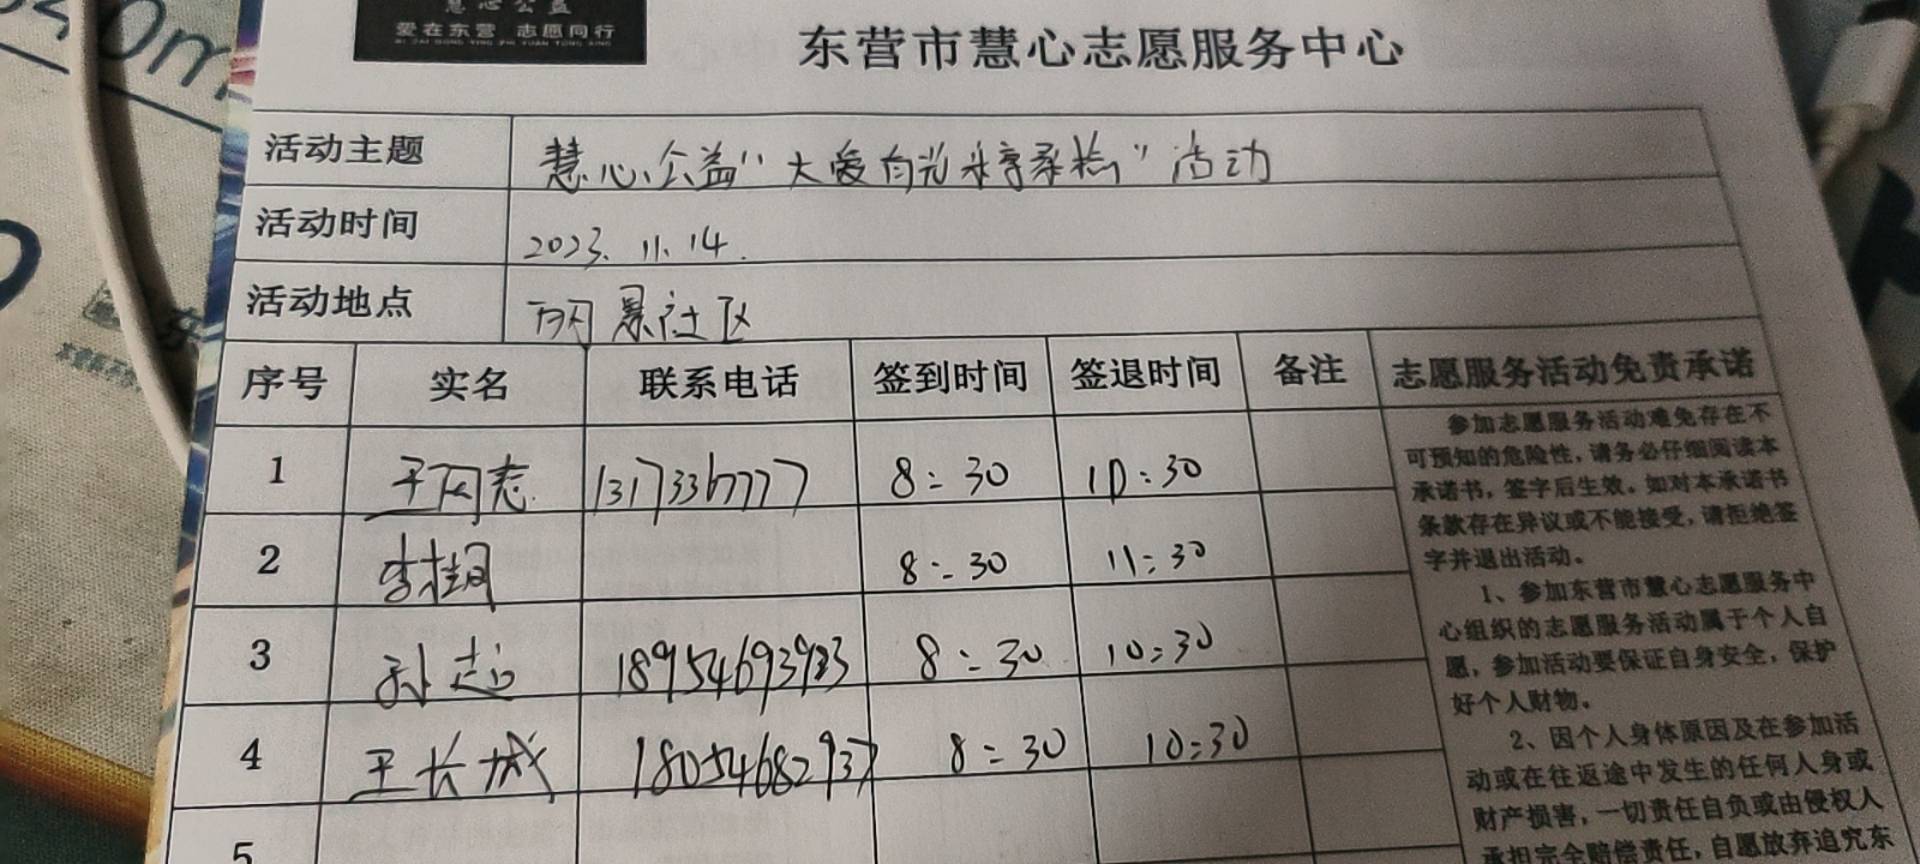 慧心公益
爱在东营 志愿同行
AI ZAI DONG YING ZHI YUAN TONG XING
东营市慧心志愿服务中心
活动主题 慧心公益“大爱有光 活动
活动时间 2023.11.14.
活动地点 丽景社区
序号 实名 联系电话 签到时间 签退时间 备注 志愿服务活动免责承诺
1 13173367777 8:30 10:30
2 8:30 11:30
3 孙超 8:30 10:30
4 王长城 18054682937 8:30 10:30
5
参加志愿服务活动难免存在不
可预知的危险性,请务必仔细阅读本
承诺书,签字后生效。如对本承诺书
条款存在异议或不能接受,请拒绝签
字并退出活动。
1、参加东营市慧心志愿服务中
心组织的志愿服务活动属于个人自
愿,参加活动要保证自身安全,保护
好个人财物。
2、因个人身体原因及在参加活
动或在往返途中发生的任何人身或
财产损害,一切责任自负或由侵权人
承担完全赔偿责任,自愿放弃追究东